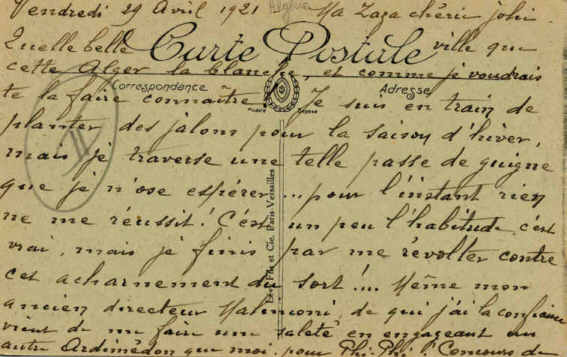 Vendredi 29 Avril 1921 Ma Zaza chérie jolie.
Quelle belle Carte Postale ville que
cette Alger la blanche, et comme je voudrais
Correspondance Adresse
te la faire connaître. Je suis en train de
planter des jalons pour la saison d'hiver,
mais je traverse une telle passe de guigne
que je n'ose espérer... pour l'instant rien
ne me réussit! C'est un peu l'habitude c'est
vrai, mais je finis par me révolter contre
cet acharnement du sort!... Même mon
ancien directeur Malinconi, de qui j'ai la confiance
vient de me faire une saleté en engageant un
autre Ardimédon que moi, pour Phi-Phi! Concours de
et Cie, Paris Versailles